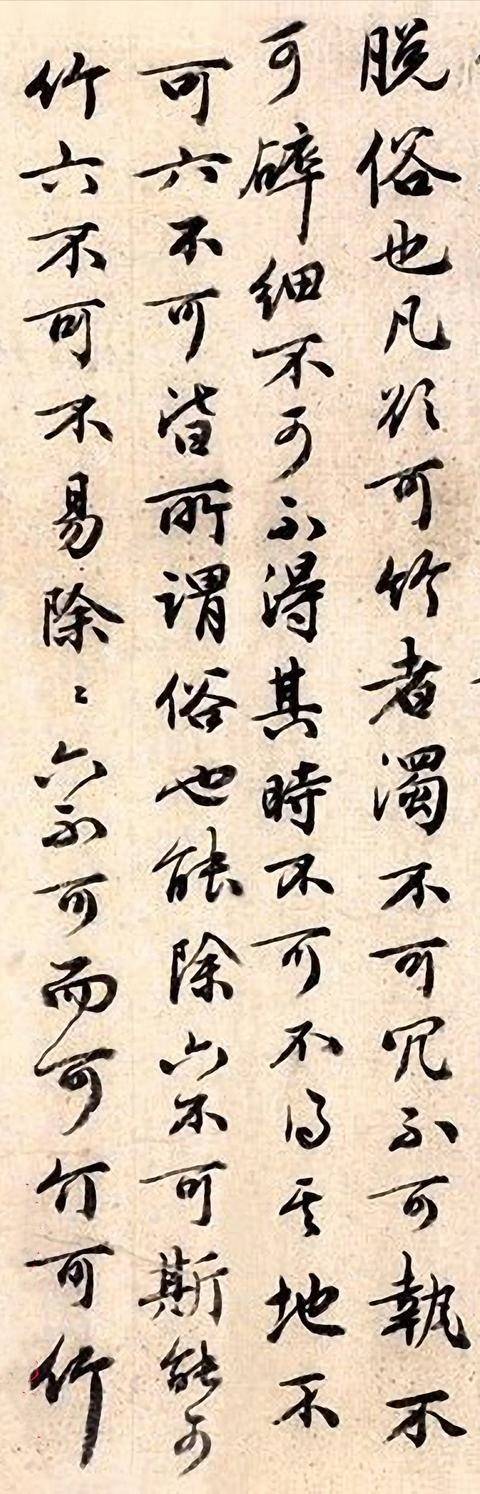 脱俗也凡欲可竹者濁不可冗不可執不
可碎細不可不得其時不可不得其地不
可六不可皆所謂俗也能除六不可斯能可
竹六不可不易除〻六不可而可竹可竹